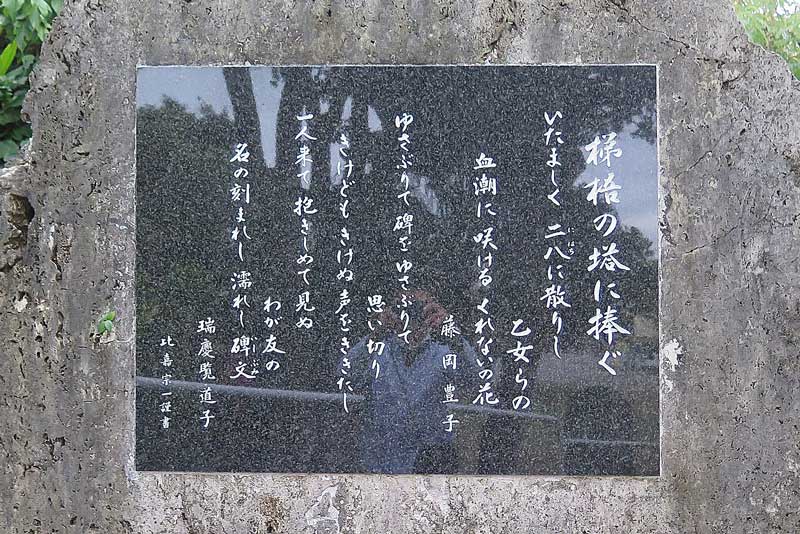 梯梧の塔に捧ぐ
いたましく 二八に散りし
にはち
乙女らの
血潮に咲ける くれないの花
藤岡豊子
ゆさぶりて碑をゆさぶりて
思い切り
きけどもきけぬ声をききたし
一人来て抱きしめて見ぬ
わが友の
名の刻まれし 濡れし碑文
いしぶみ
瑞慶覧道子
比嘉宗一謹書